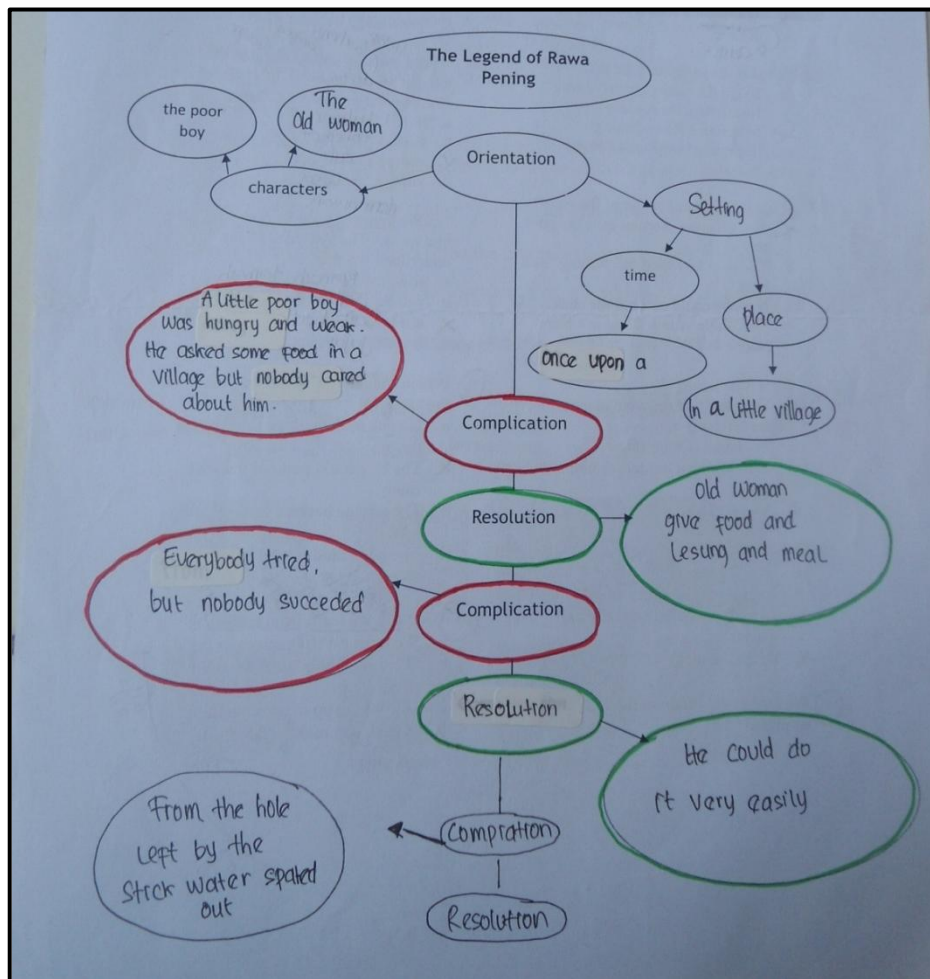 The Legend of Rawa
Pening
the poor
boy
The
Old woman
Orientation
characters
Setting
time
place
once upon a
In a little village
A little poor boy
was hungry and weak.
He asked some food in a
village but nobody cared
about him.
Complication
Resolution
Old woman
give food and
Lesung and meal
Everybody tried,
but nobody succeded
Complication
Resolution
He could do
it very easily
From the hole
left by the
stick water spated
out
Compration
Resolution